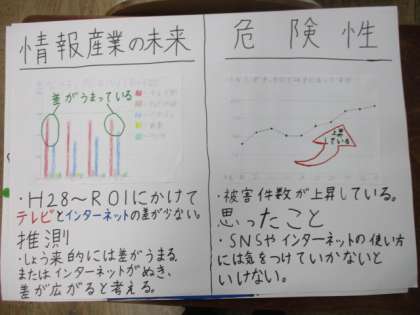 情報産業の未来
差がうまっている
・H28～R01にかけて
テレビとインターネットの差が少ない。
推測
・しょう来的には差がうまる
またはインターネットがぬき、
差が広がると考える。
危険性
上昇
している
・被害件数が上昇している。
思ったこと
・SNSやインターネットの使い方
には気をつけていかないと
いけない。